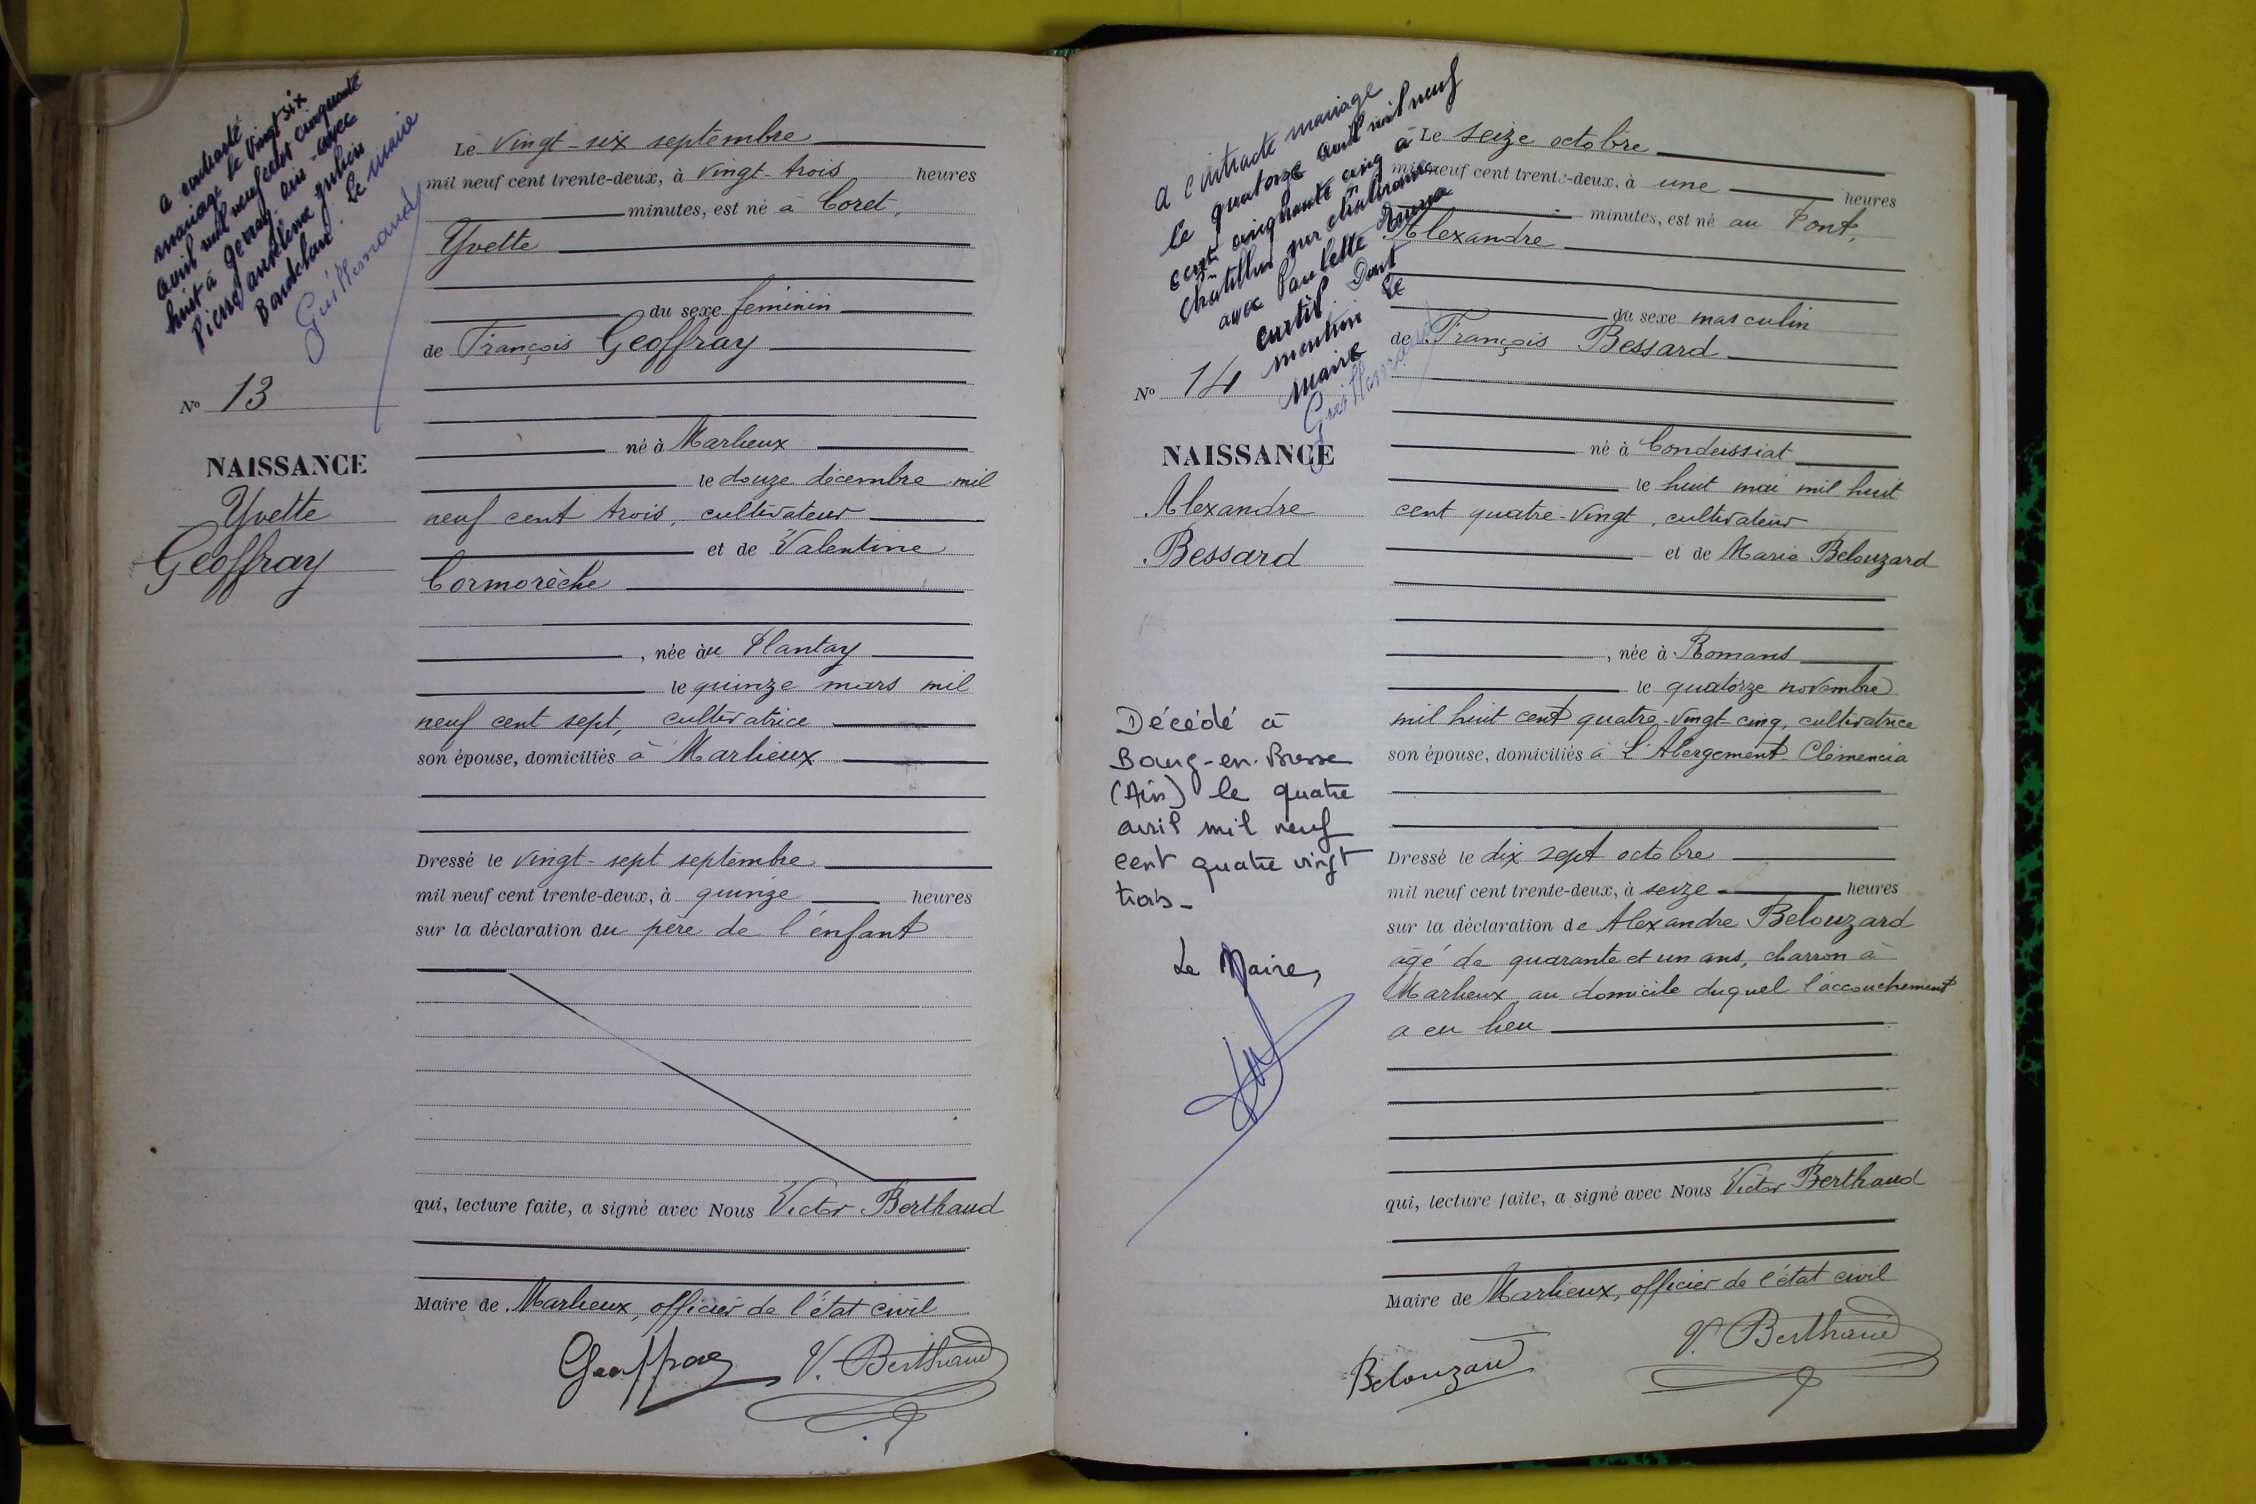 a contracté
mariage le vingt six
avril mil neuf cent cinquante
huit à Ain avec
Pierre Julien
Le Maire
Guillemaud
Le vingt-six septembre
mil neuf cent trente-deux, à vingt-trois heures
minutes, est né à Coret,
Yvette
du sexe féminin
de François Geoffray
N° 13
né à Marlieux
NAISSANCE
le douze décembre mil
Yvette
neuf cent trois, cultivateur
et de Valentine
Geoffray
Cormorèche
, née au Plantay
le quinze mars mil
neuf cent sept, cultivatrice
son épouse, domiciliés à Marlieux
Dressé le vingt-sept septembre
mil neuf cent trente-deux, à quinze heures
sur la déclaration du père de l'enfant
qui, lecture faite, a signé avec Nous Victor Berthaud
Maire de Marlieux, officier de l'état civil
Geoffray V. Berthaud
a contracté mariage
le quatorze avril mil neuf
cent cinquante cinq à
Châtillon sur Chalaronne
avec Paulette
Curtil Dont
mention Le
Maire
Guillemaud
Le seize octobre
mil neuf cent trente-deux, à une heures
minutes, est né au Pont,
Alexandre
du sexe masculin
de François Bessard
N° 14
né à Condeissiat
NAISSANCE
le huit mai mil huit
Alexandre
cent quatre-vingt, cultivateur
Bessard
et de Maria Belouzard
, née à Romans
le quatorze novembre
mil huit cent quatre-vingt-cinq, cultivatrice
son épouse, domiciliés à L'Abergement-Clémencia
Décédé à
Bourg-en-Bresse
(Ain) le quatre
avril mil neuf
cent quatre vingt
trois-
Le Maire,
Dressé le dix sept octobre
mil neuf cent trente-deux, à seize heures
sur la déclaration de Alexandre Belouzard
âgé de quarante et un ans, charron à
Marlieux, au domicile duquel l'accouchement
a eu lieu
qui, lecture faite, a signé avec Nous Victor Berthaud
Maire de Marlieux, officier de l'état civil
Belouzard V. Berthaud